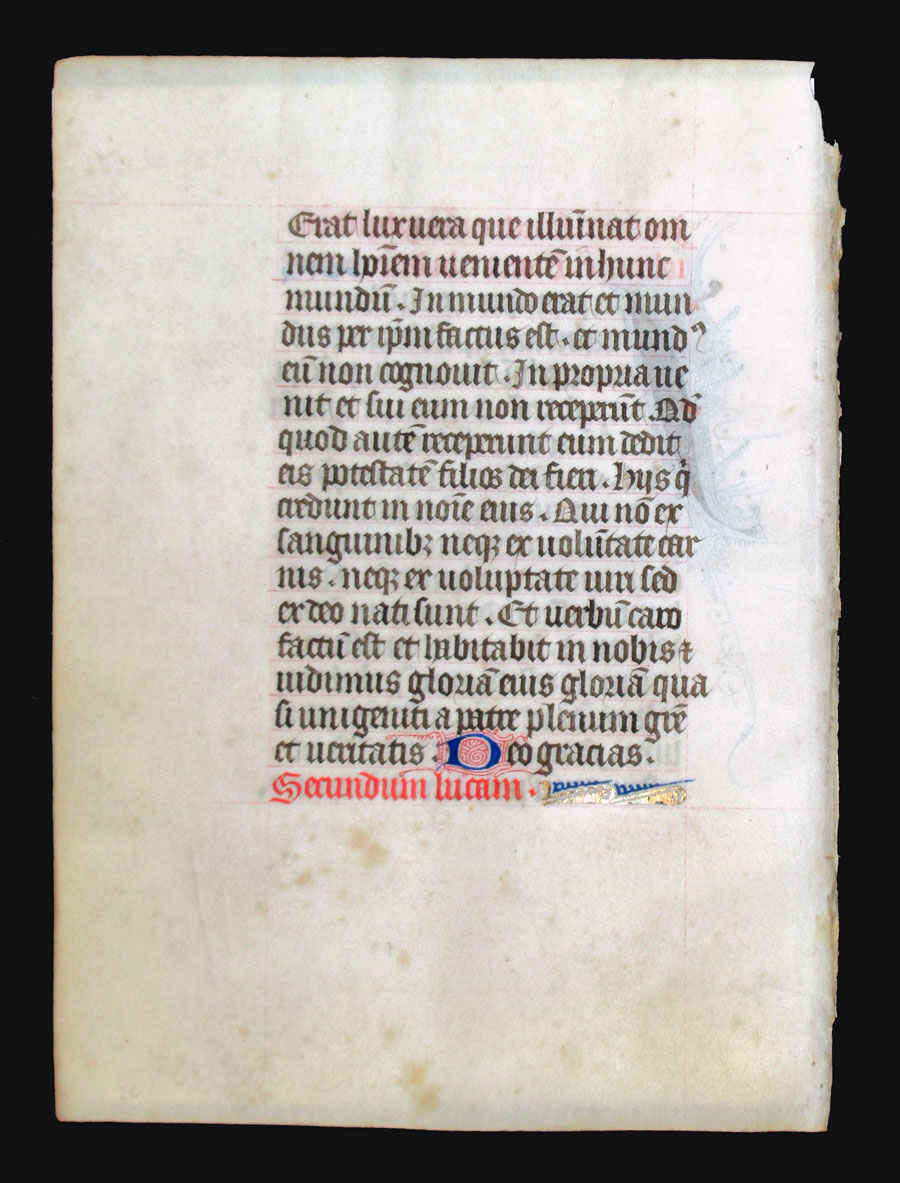 Erat lux uera que illuīnat om
nem hoīem uenientē in hunc
mundū. In mundo erat et mun
dus per ip̄m factus est. et mundꝰ
eū non cognouit. In propria ue
nit et sui eum non receperūt Qd̓
quod autē receperunt eum dedit
eis potestatē filios dei fieri. Hijs q̇
credunt in noīe eius. Qui nō ex
sanguinibꝫ neqꝫ ex uolūtate car
nis. neqꝫ ex uoluptate uiri sed
ex deo nati sunt. Et uerbū caro
factū est et habitabit in nobis ⁊
uidimus gloriā eius gloriā qua
si unigeniti a patre plenum gr̄e
et ueritatis. Deo gracias.
Secundum lucam.